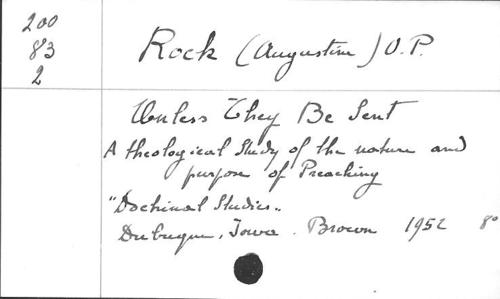 200
83
2
Rock (Augustine) O.P.
Unless They Be Sent
A theological Study of the nature and
purpose of Preaching
"Doctrinal Studies"
Dubuque, Iowa. Brown 1952 8°